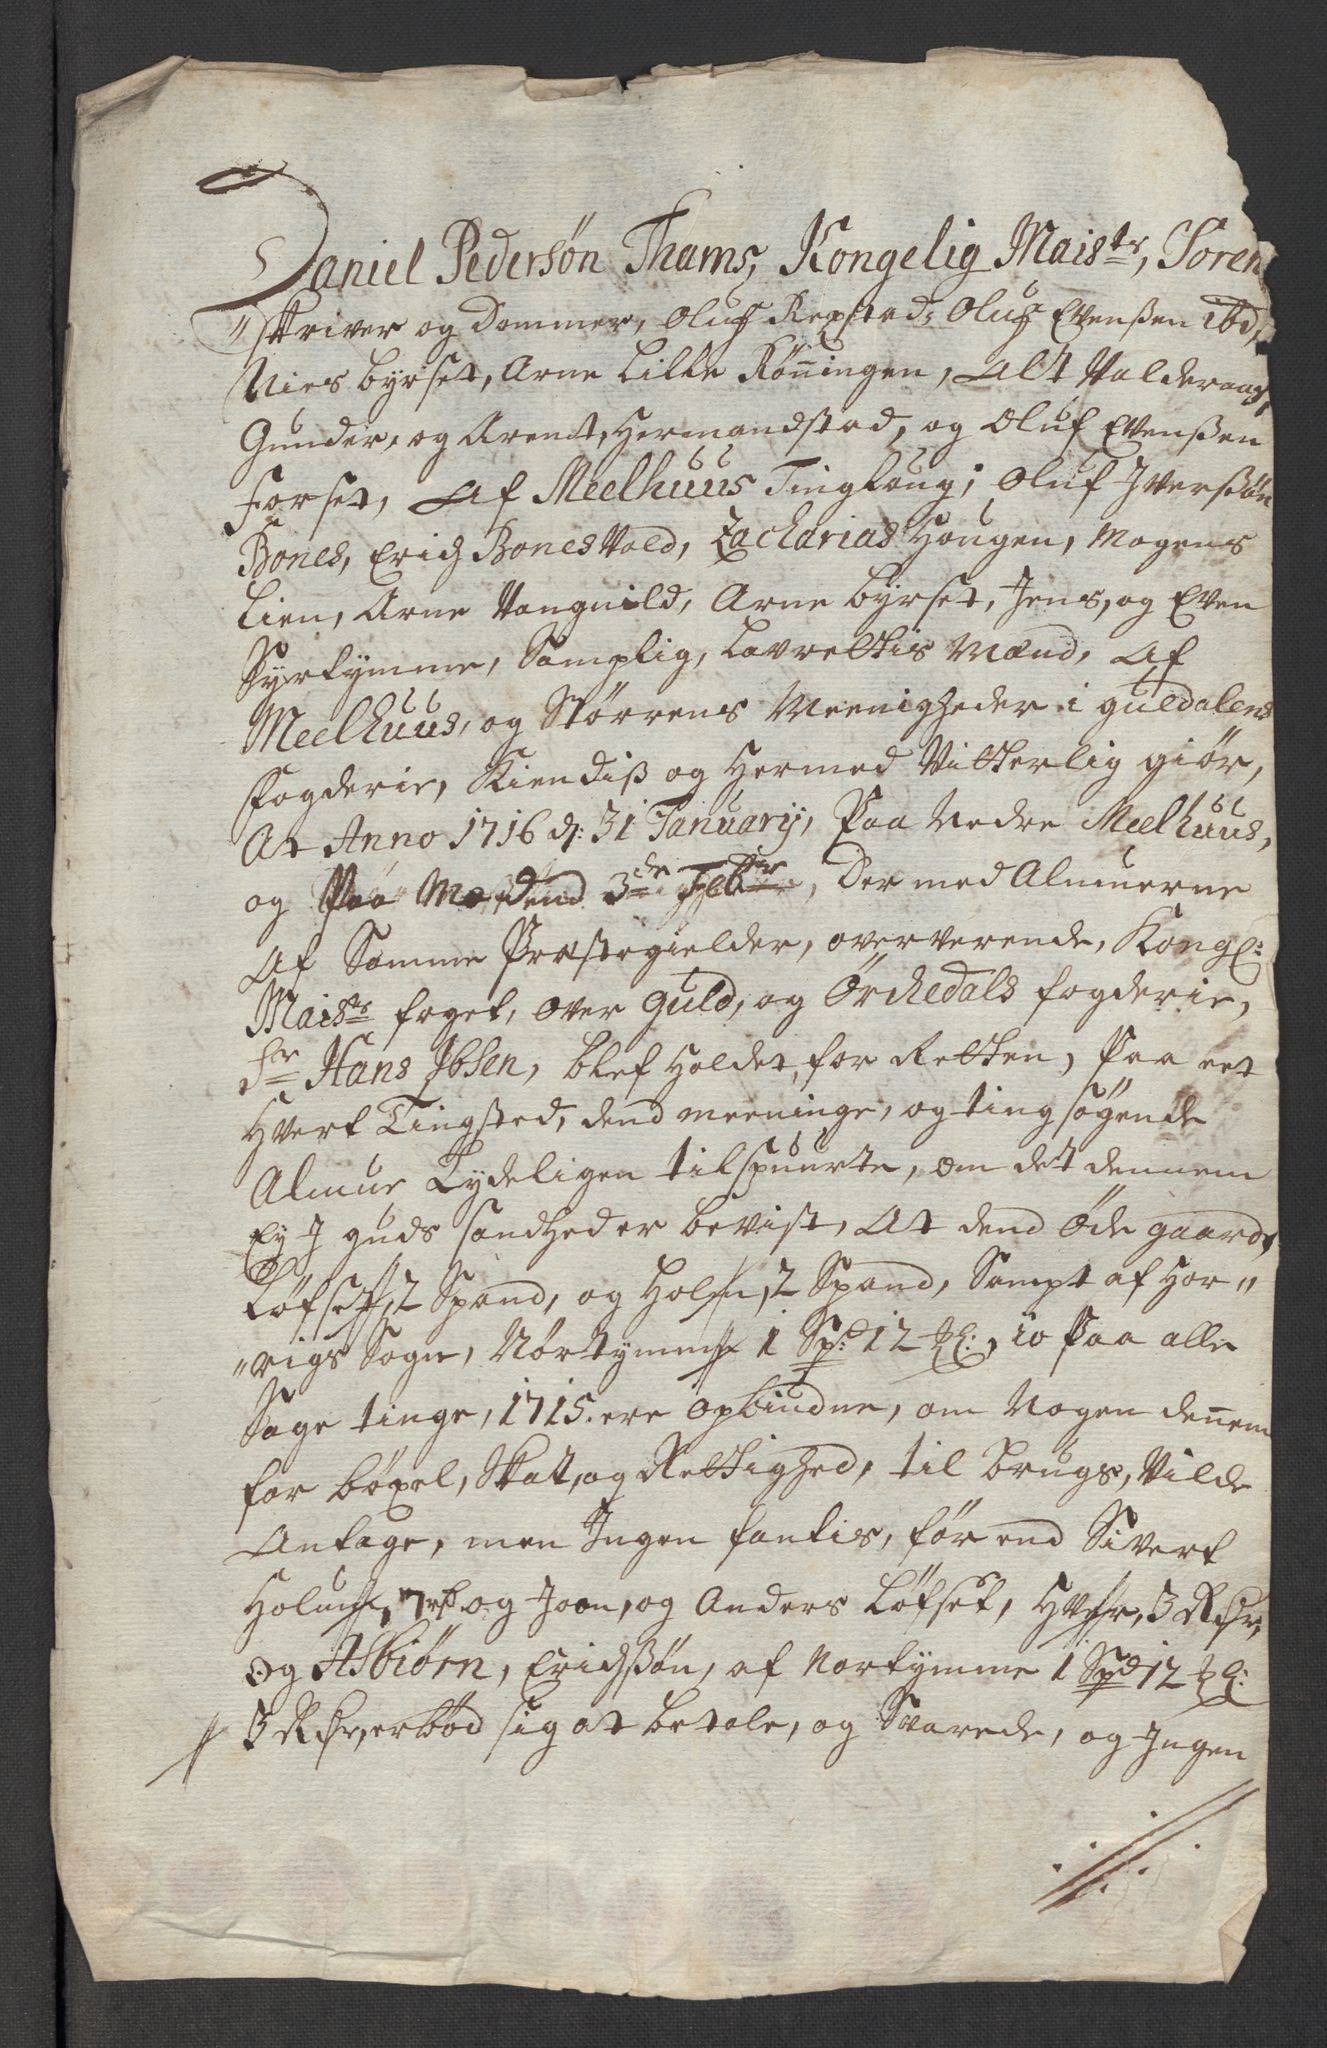 Daniel Pedersøn Thams, Kongelig Maists, Soren
"skriver og Dommer, Oluf Repstad, Oluf Evenßen ibd,
Nies Byrset, Arne Lille Rønningen, Alt Valderaas,
Gunder, og Arent, Hermandstad, og Oluf Evenßen
Forset, Af Meelhuus Tinglaug; Oluf Iverßøn
Bones, Erich Bones Vold, Zacharias Hougen, Mogens
Lien, Arne Vangvild, Arne Byrset, Jens, og Even
Syrtymme, Samptlig, Lavrettis Mænd, Af
Meelhuus, og Størrens Meenigheder i Guldalens
Fogderie, Kiendiß og Hermed Vitterlig giør,
At Anno 1716 d: 31 January, Paa Nedre Meelhuus,
og Paa Mo, dend 3de Febr, Der med Almuerne
Af Samme Præstegielder, overværende, Kongl:
Maists foget, over Guld, og Örckedals fogderie,
Sr Hans Ibsen, blef Holdet, for Retten, Paa eet
Hvert Tingsted, dend meeninge, og ting søgende
Almue Tydeligen tilspuurte, om det dennem
Ey I Guds sandhed er bevist, At dend Øde gaard,
Løfset, 2 Spand, og Holum, 2 Spand, Sampt af Hor"
"rigs Sogn, Nørtymme 1 Sp: 12 , so Paa alle
Sage tinge, 1715. ere opbiudne, om Nogen dennem
for bøxel, Skatt, og Rettighed, til brugs, Vilde
Antage, men Ingen fantis, før end Sivert
Holum, og Joon, og Anders Løfset, Hver, 3
og Asbiørn, Erichßøn, af Nortymme 1 Spd 12
3 erbød sig at betale, og Svarede, og Ingen